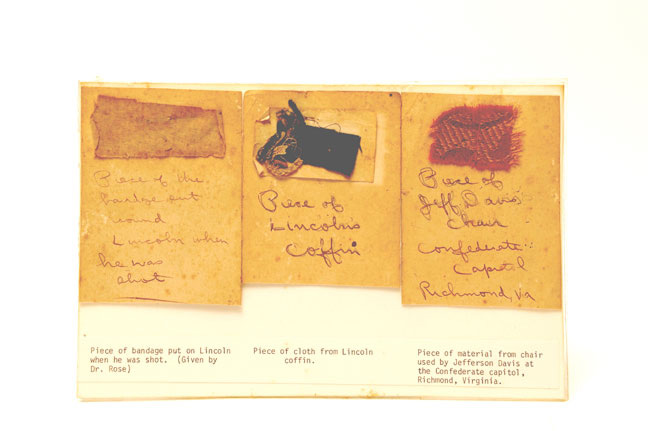 Piece of the
bandge put
wound
Lincoln when
he was
shot
Piece of
Lincolns
Coffin
Piece of
Jeff Davis
Chair
Confederate
Capitol
Richmond, Va
Piece of bandage put on Lincoln
when he was shot. (Given by
Dr. Rose)
Piece of cloth from Lincoln
coffin.
Piece of material from chair
used by Jefferson Davis at
the Confederate capitol,
Richmond, Virginia.